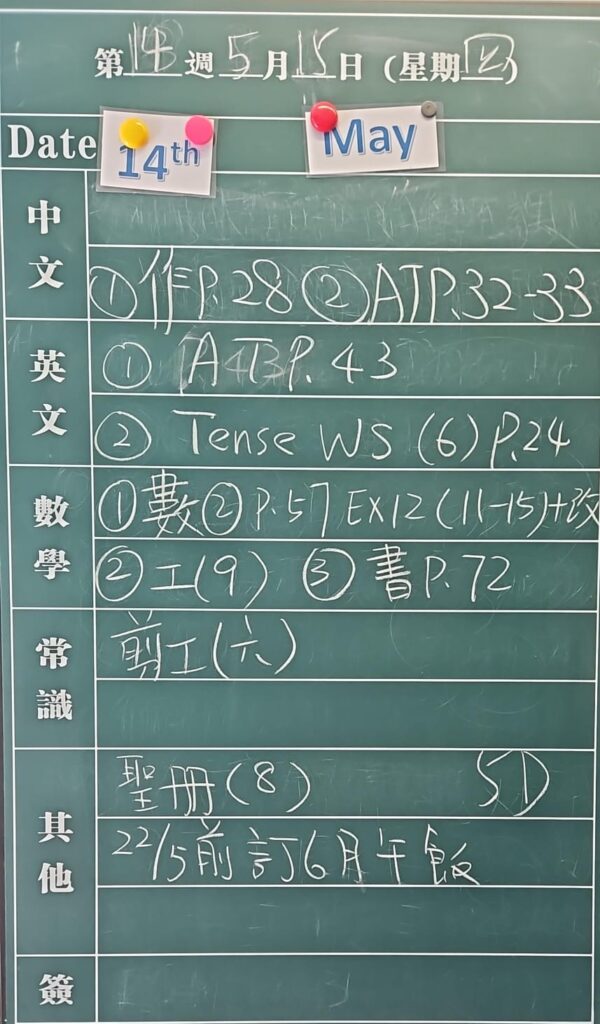 第14週5月15日(星期四)
Date 14th May
中文
①作P.28 ②ATP.32-33
英文
① ATP.43
② Tense WS (6) P.24
數學
①數② P.57 EX12 (11-15)+改
② 工(9) ③ 書P.72
常識
剪工(六)
其他
聖冊(8) 5D
22/5前訂6月午飯
簽